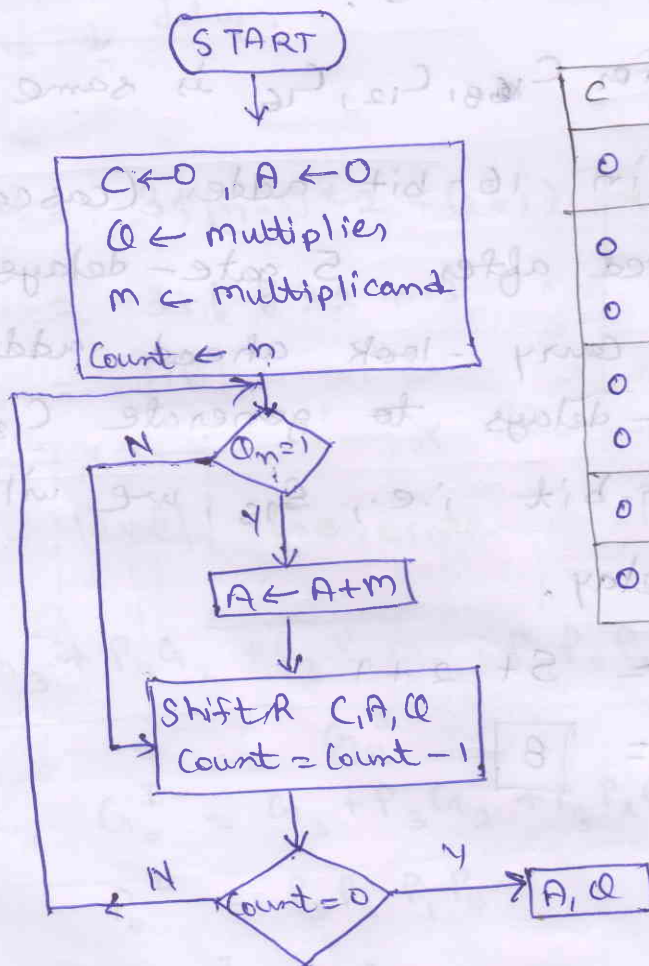 START
C ← 0 , A ← 0
Q ← multiplier
m ← multiplicand
Count ← n
Qn=1
N
Y
A ← A+m
Shift R C, A, Q
Count = Count - 1
Count = 0
N
Y
A, Q
C
0
0
0
0
0
0
0